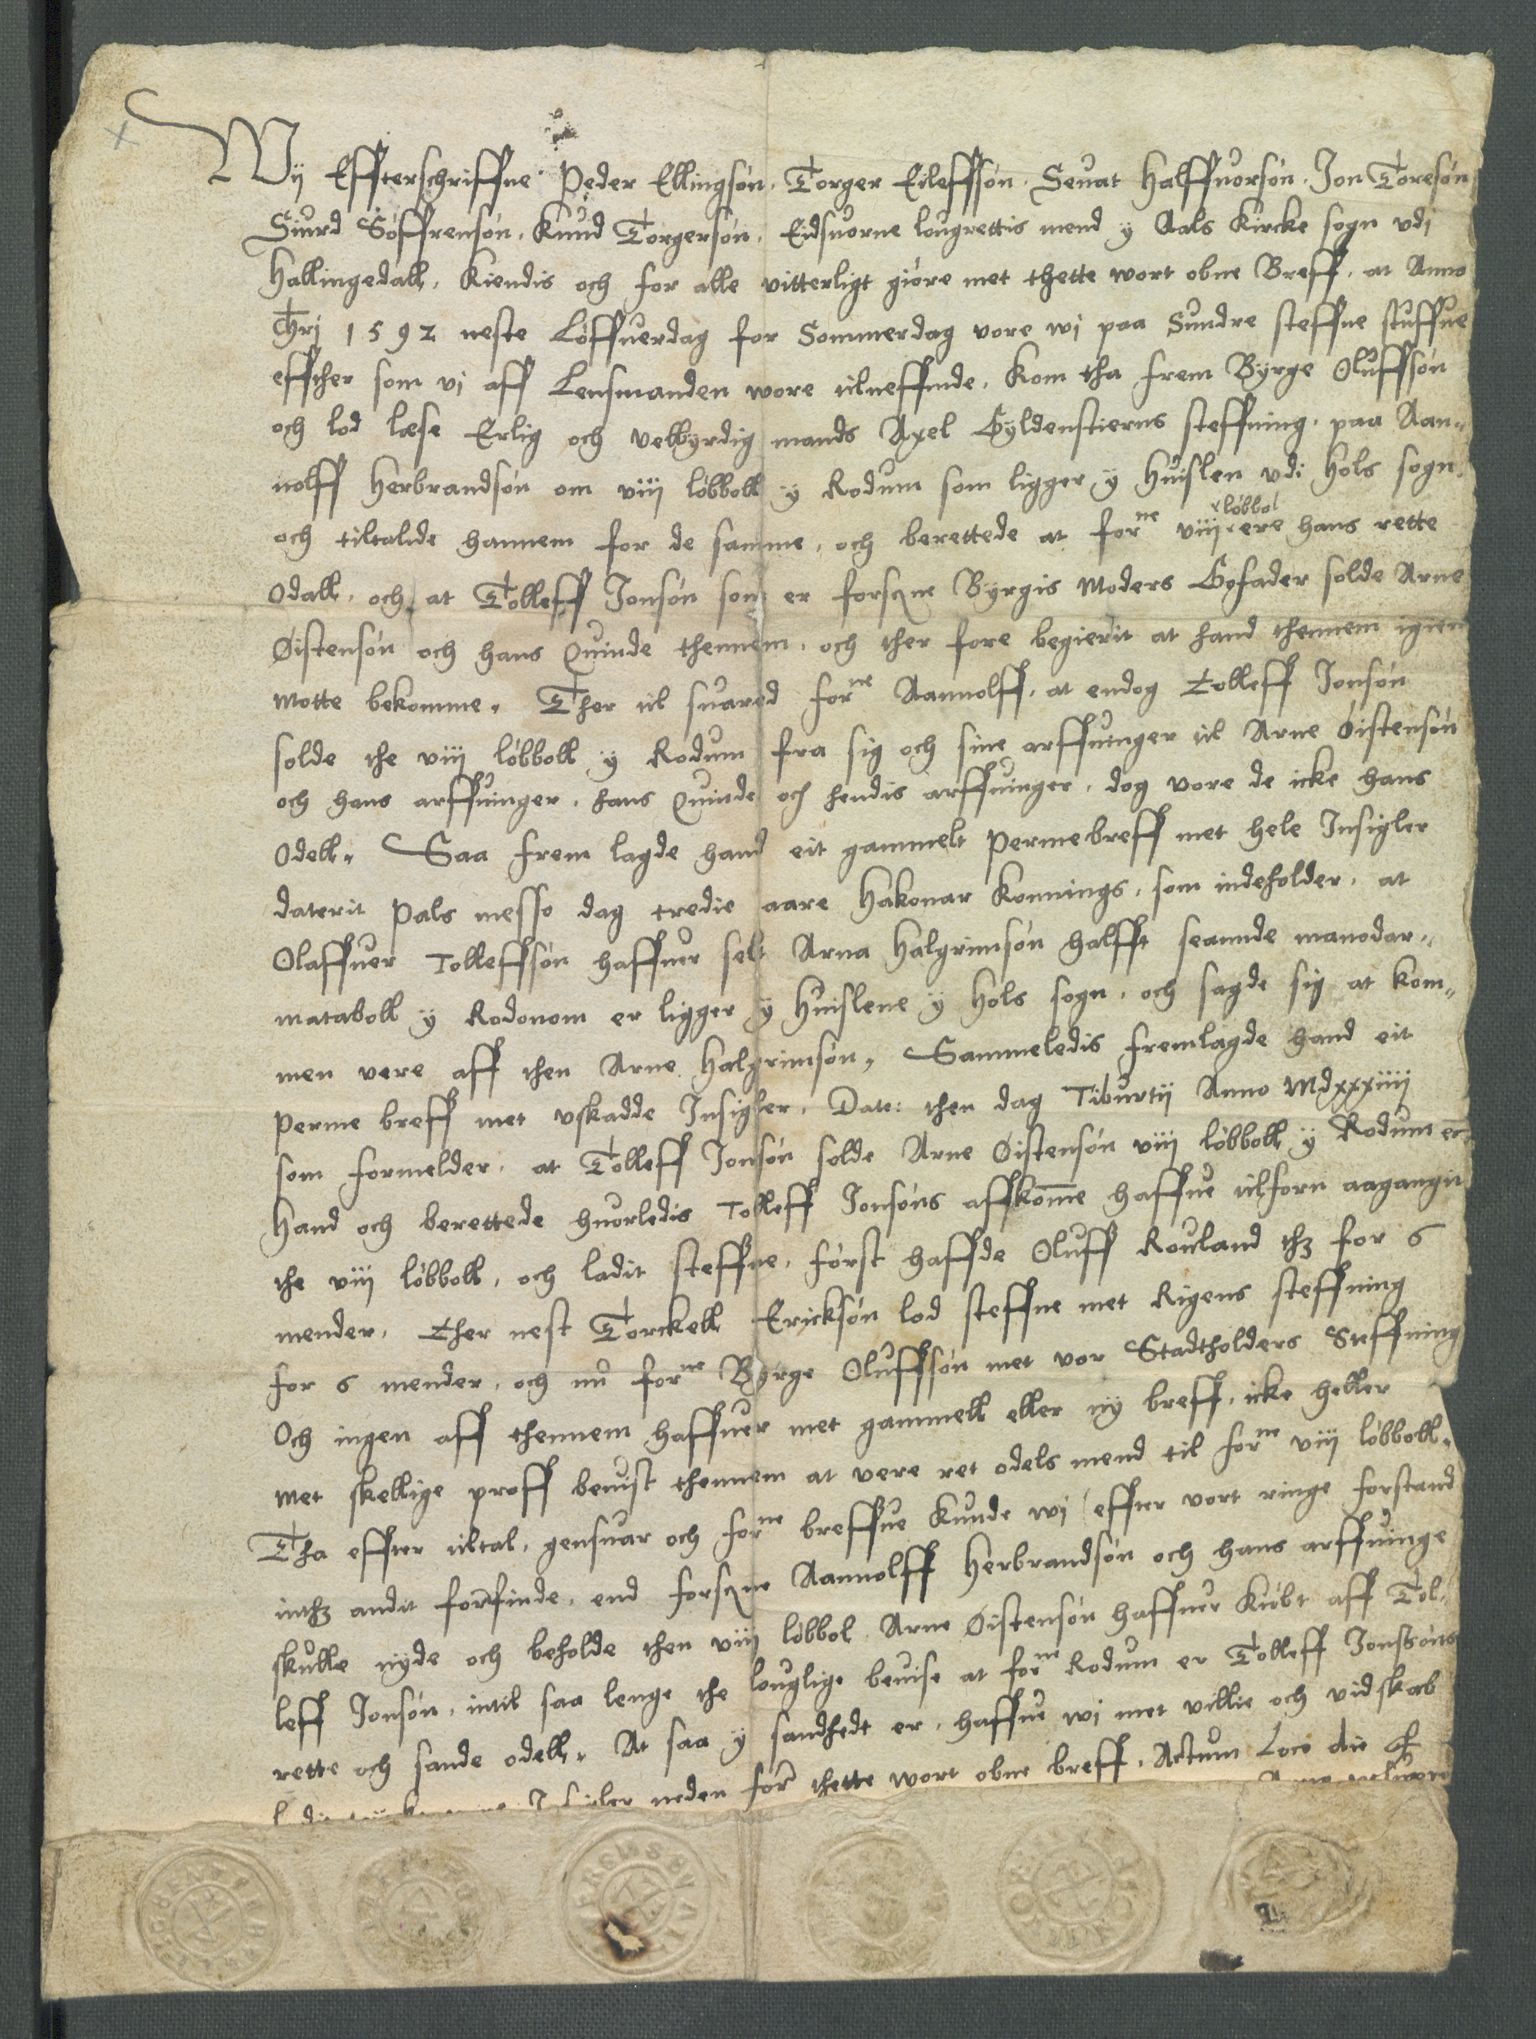 Wij Effterschriffne Peder Ellingsøn, Torger Eileffsøn, Seuat Halffuorsøn, Jon Toresøn
Siurd Søffrensøn, Knud Torgersøn, Eidsuorne lougrettis mend y Aals Kircke sogn vdi
Hallingedall, Kiendis och for alle vitterligt giøre met thette wort obne Breff, at Anno
Chrj 1592 neste Løffuerdag for Sommerdag vore wi paa Sundre steffne stuffue
effther som vi aff Lensmanden wore tilneffnde, Kom tha frem Byrge Oluffsøn
och lod læse Erlig och velbyrdig mands Axel Gyldenstierns steffning, paa Aan-
nolff Herbrandsøn om viij løbboll y Rodum som ligger y Huislen vdi Hols sogn,
och tiltalide hannem for de samme, och berettede at forne viij løbbol ere hans rette
Odall, och at Tolleff Jonsøn som er forscne Byrgis Moders Gofader solde Arne
Øistensøn och hans Quinde thennem, och ther fore begierit at hand thennem igien
motte bekomme, Ther til suared forne Aannolff, at endog Tolleff Jonsøn
solde the viij løbboll y Rodum fra sig och sine arffuinger til Arne Øistensøn
och hans arffuinger, hans Quinde och hendis arffuinger, dog vore de icke hans
Odell, Saa frem lagde hand eit gammelt permebreff met hele Insigler
daterit Pals messo dag tredie aare Hakonar Konnings, som indeholder, at
Olaffuer Tolleffsøn haffuer selt Arna Halgrimsøn halfft seannde manodar-
mataboll y Rodonom er ligger y Huislene y Hols sogn, och sagde sig at kom-
men vere aff then Arne Halgrimsøn, Sammeledis fremlagde hand eit
perme breff met vskadde Insigler, Date: then dag Tiburtij Anno Mdxxxiiij
som formelder, at Tolleff Jonsøn solde Arne Øistensøn viij løbboll y Rodum
Hand och berettede huorledis Tolleff Jonsøns affkomme haffue tilforn aagangit
the viij løbboll, och ladit steffne, først haffde Oluff Rouland thz for 6
mender, Ther nest Torckell Ericksøn lod steffne met Rigens steffning
for 6 mender, och nu forne Byrge Oluffsøn met vor Stadtholders Steffning
Och ingen aff thennem haffuer met gammell eller ny breff, icke heller
met skellige proff beuist thennem at vere ret odels mend til forne viij løbboll,
Tha effter tiltal, gensuar och forne breffue Kunde wi effter vort ringe forstand
inthz andit forfinde, end forscne Aannolff Herbrandsøn och hans arffuinge
skulle nyde och beholde then viij løbbol Arne Øistensøn haffuer Kiøbt aff Tol-
leff Jonsøn, intil saa lenge the louglige beuise at forne Rodum er Tolleff Jonsøns
rette och sande odell, At saa y sandhedt er, haffue wi met villie och vidskab
neden for thette wort obne breff, Actum Loco die